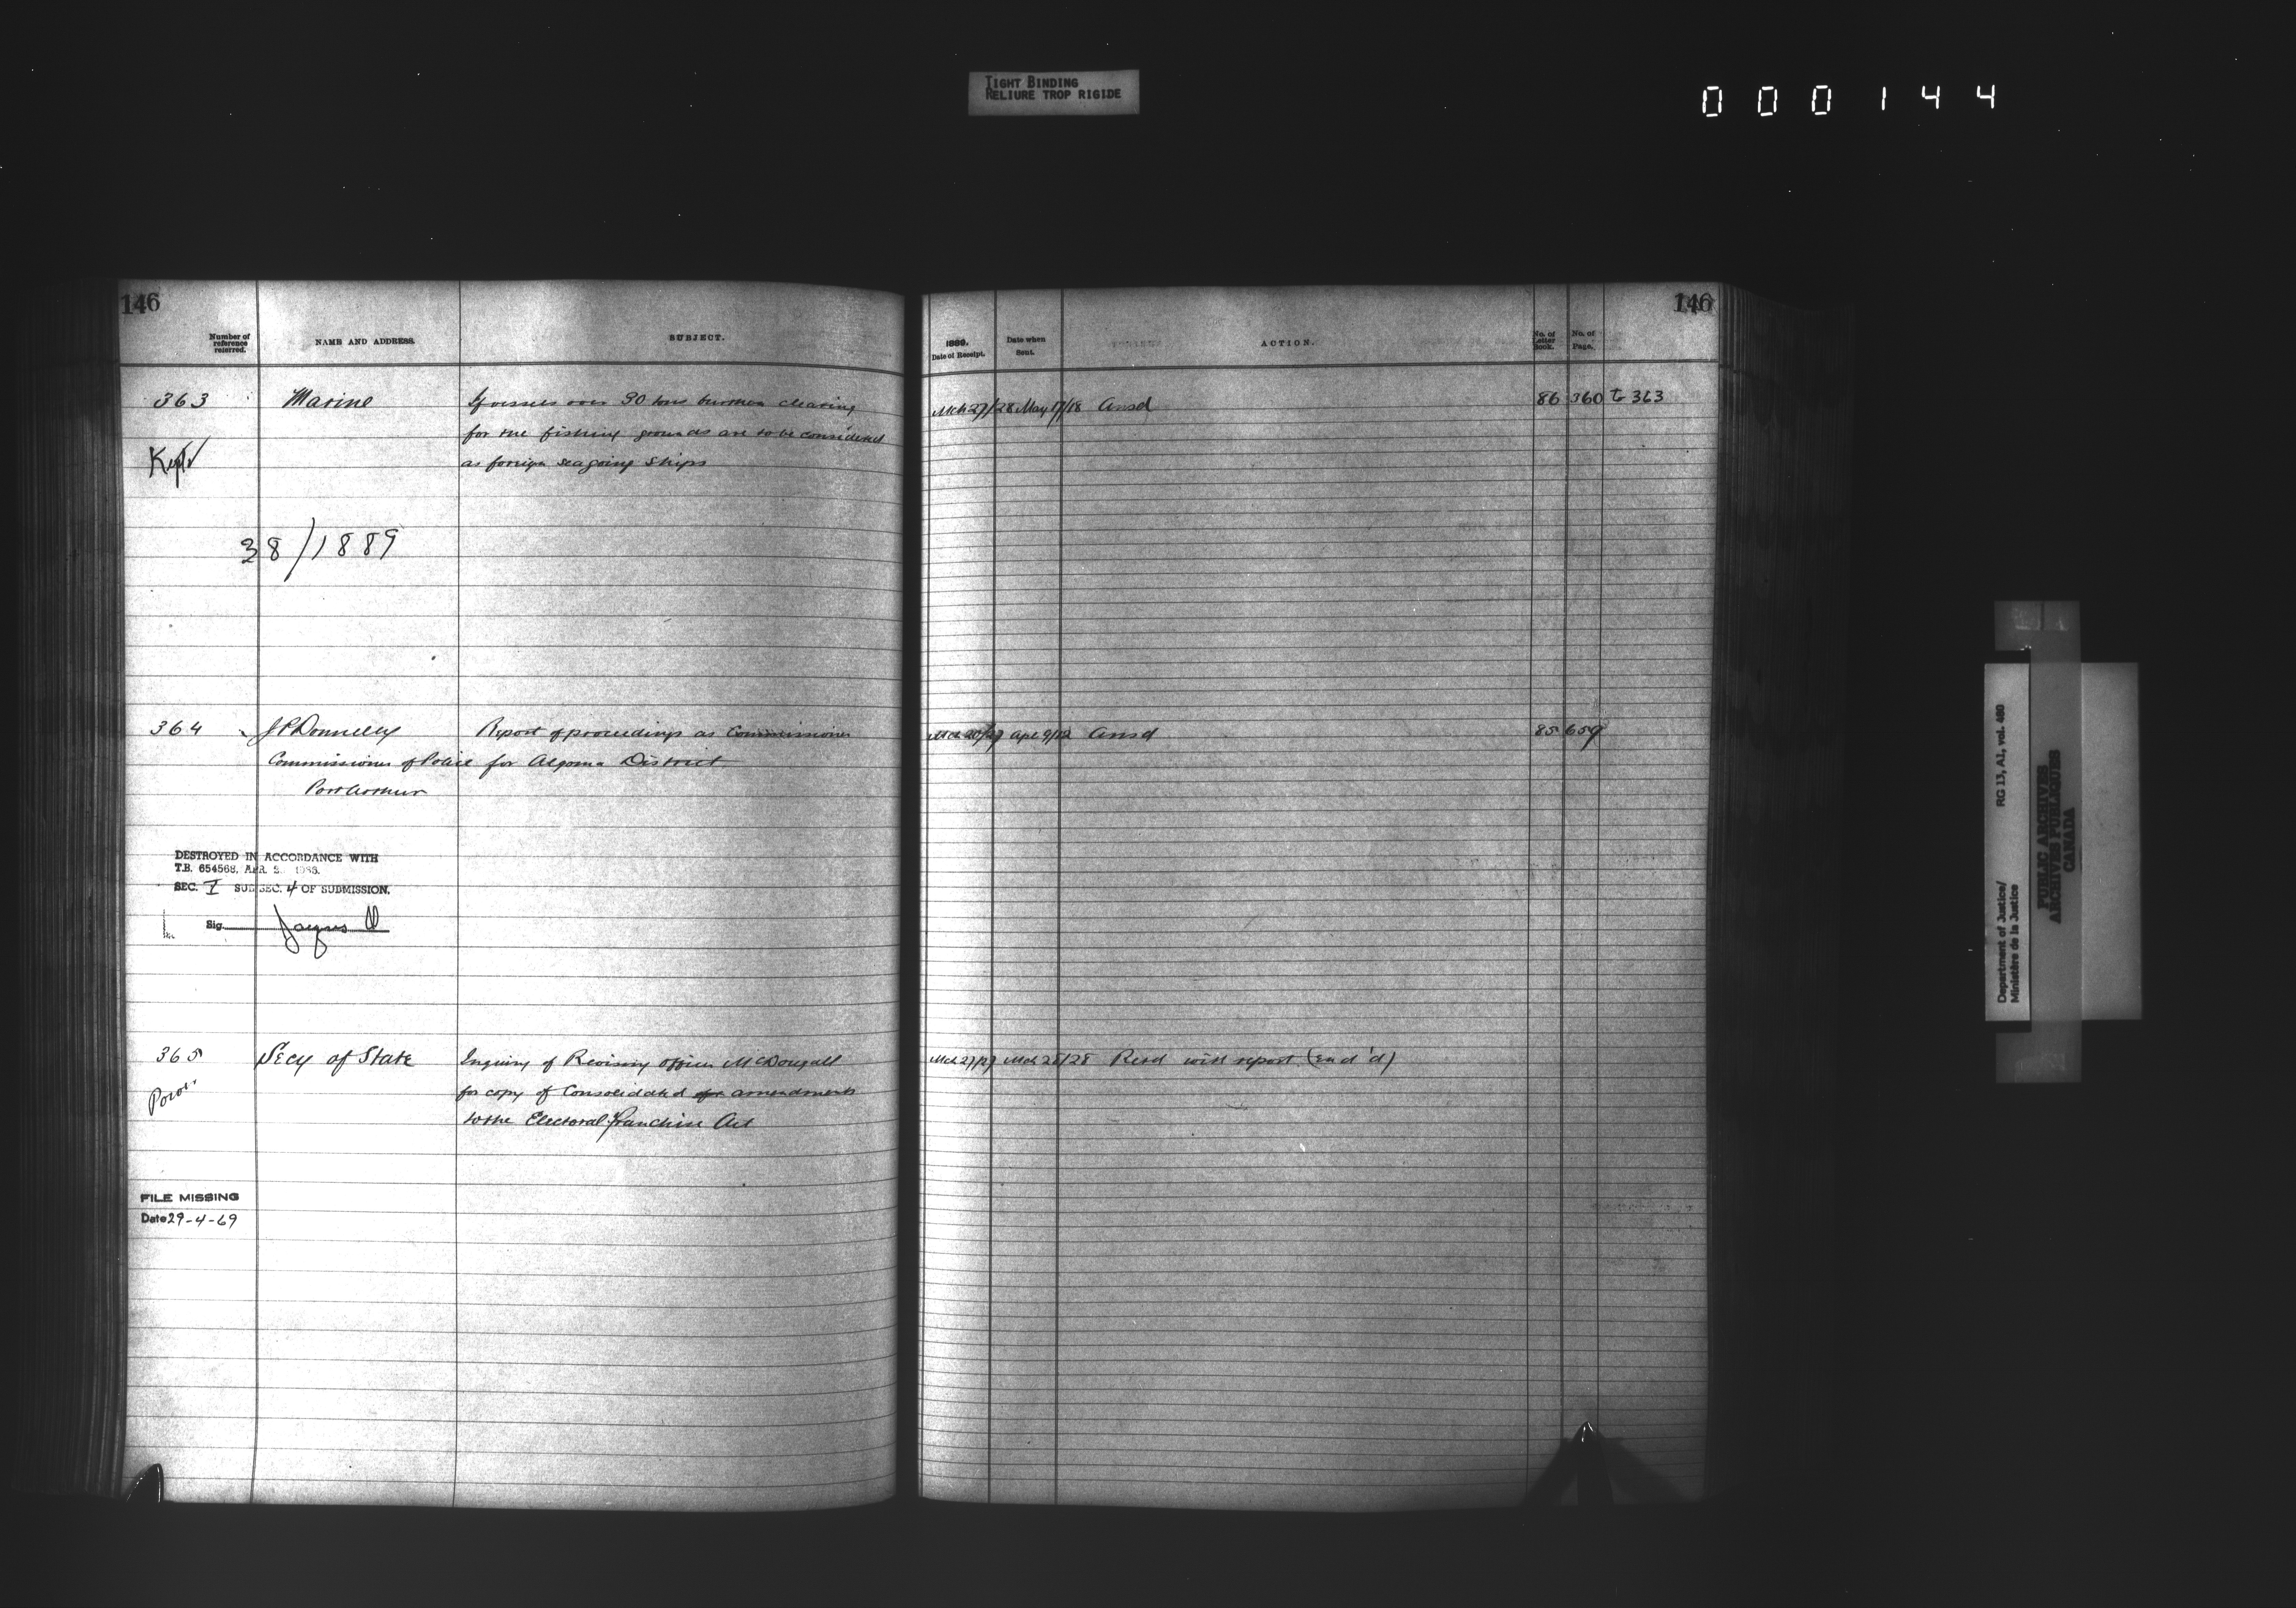 TIGHT BINDING
RELIURE TROP RIGIDE
000144
146
Number of reference referred.
NAME AND ADDRESS.
SUBJECT.
363
Marine
If vessels over 80 tons burthen clearing
for the fishing grounds are to be considered
as foreign seagoing ships
Kept
38/1889
364
J P Donnelly
Report of proceedings as Commissioner
Commissioner of Police for Algoma District
Port Arthur
DESTROYED IN ACCORDANCE WITH
T.B. 654568, APR.
SEC. I SUB SEC. 4 OF SUBMISSION.
Sig.
365
Secy of State
Inquiry of Revising Officer McDougall
for copy of Consolidated amendments
to the Electoral Franchise Act
FILE MISSING
Date 29-4-69
146
1889.
Date of Receipt.
Date when Sent.
ACTION.
No. of Letter Book.
No. of Page.
Mch 27/28 May 17/18 Ansd 86 360 to 363
Mch 20/27 Apl 9/12 Ansd 85 659
Mch 27/27 Mch 28/28 Retd with report (end'd)
Department of Justice/ RG 13, A1, vol. 480
Ministère de la Justice
PUBLIC ARCHIVES
ARCHIVES PUBLIQUES
CANADA